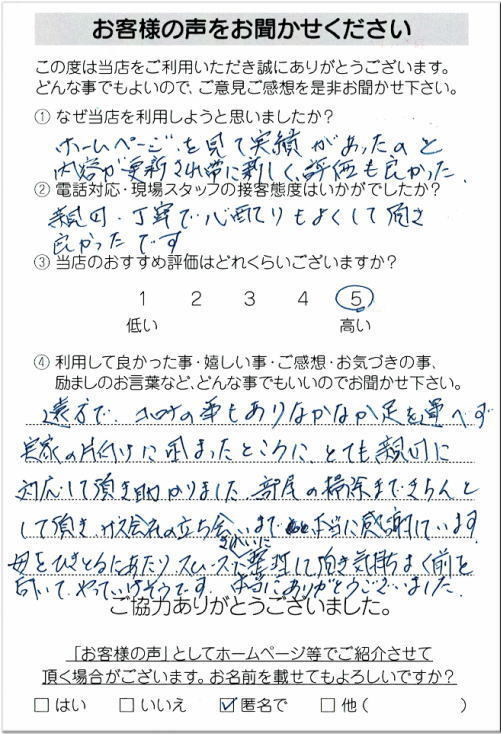 お客様の声をお聞かせください
この度は当店をご利用いただき誠にありがとうございます。
どんな事でもよいので、ご意見ご感想を是非お聞かせ下さい。
① なぜ当店を利用しようと思いましたか?
ホームページを見て実績があったのと
内容が更新され常に新しく、評価も良かった
② 電話対応・現場スタッフの接客態度はいかがでしたか?
親切・丁寧で心配りもよくして頂き
良かったです
③ 当店のおすすめ評価はどれくらいございますか?
1 2 3 4 5
低い 高い
④ 利用して良かった事・嬉しい事・ご感想・お気づきの事、
励ましのお言葉など、どんな事でもいいのでお聞かせ下さい。
遠方で、コロナの事もありなかなか足を運べず
実家の片付けに困まったところに、とても親切に
対応して頂き助かりました。部屋の掃除まできちんと
して頂き、ガス会社の立ち会いまで 本当に感謝しています。
母をひきとるにあたりスムーズにきれいに整理して頂き気持ちよく前を
向いて、やっていけそうです。本当にありがとうございました。
ご協力ありがとうございました。
「お客様の声」としてホームページ等でご紹介させて
頂く場合がございます。お名前を載せてもよろしいですか?
□ はい □ いいえ ☑ 匿名で □ 他( )